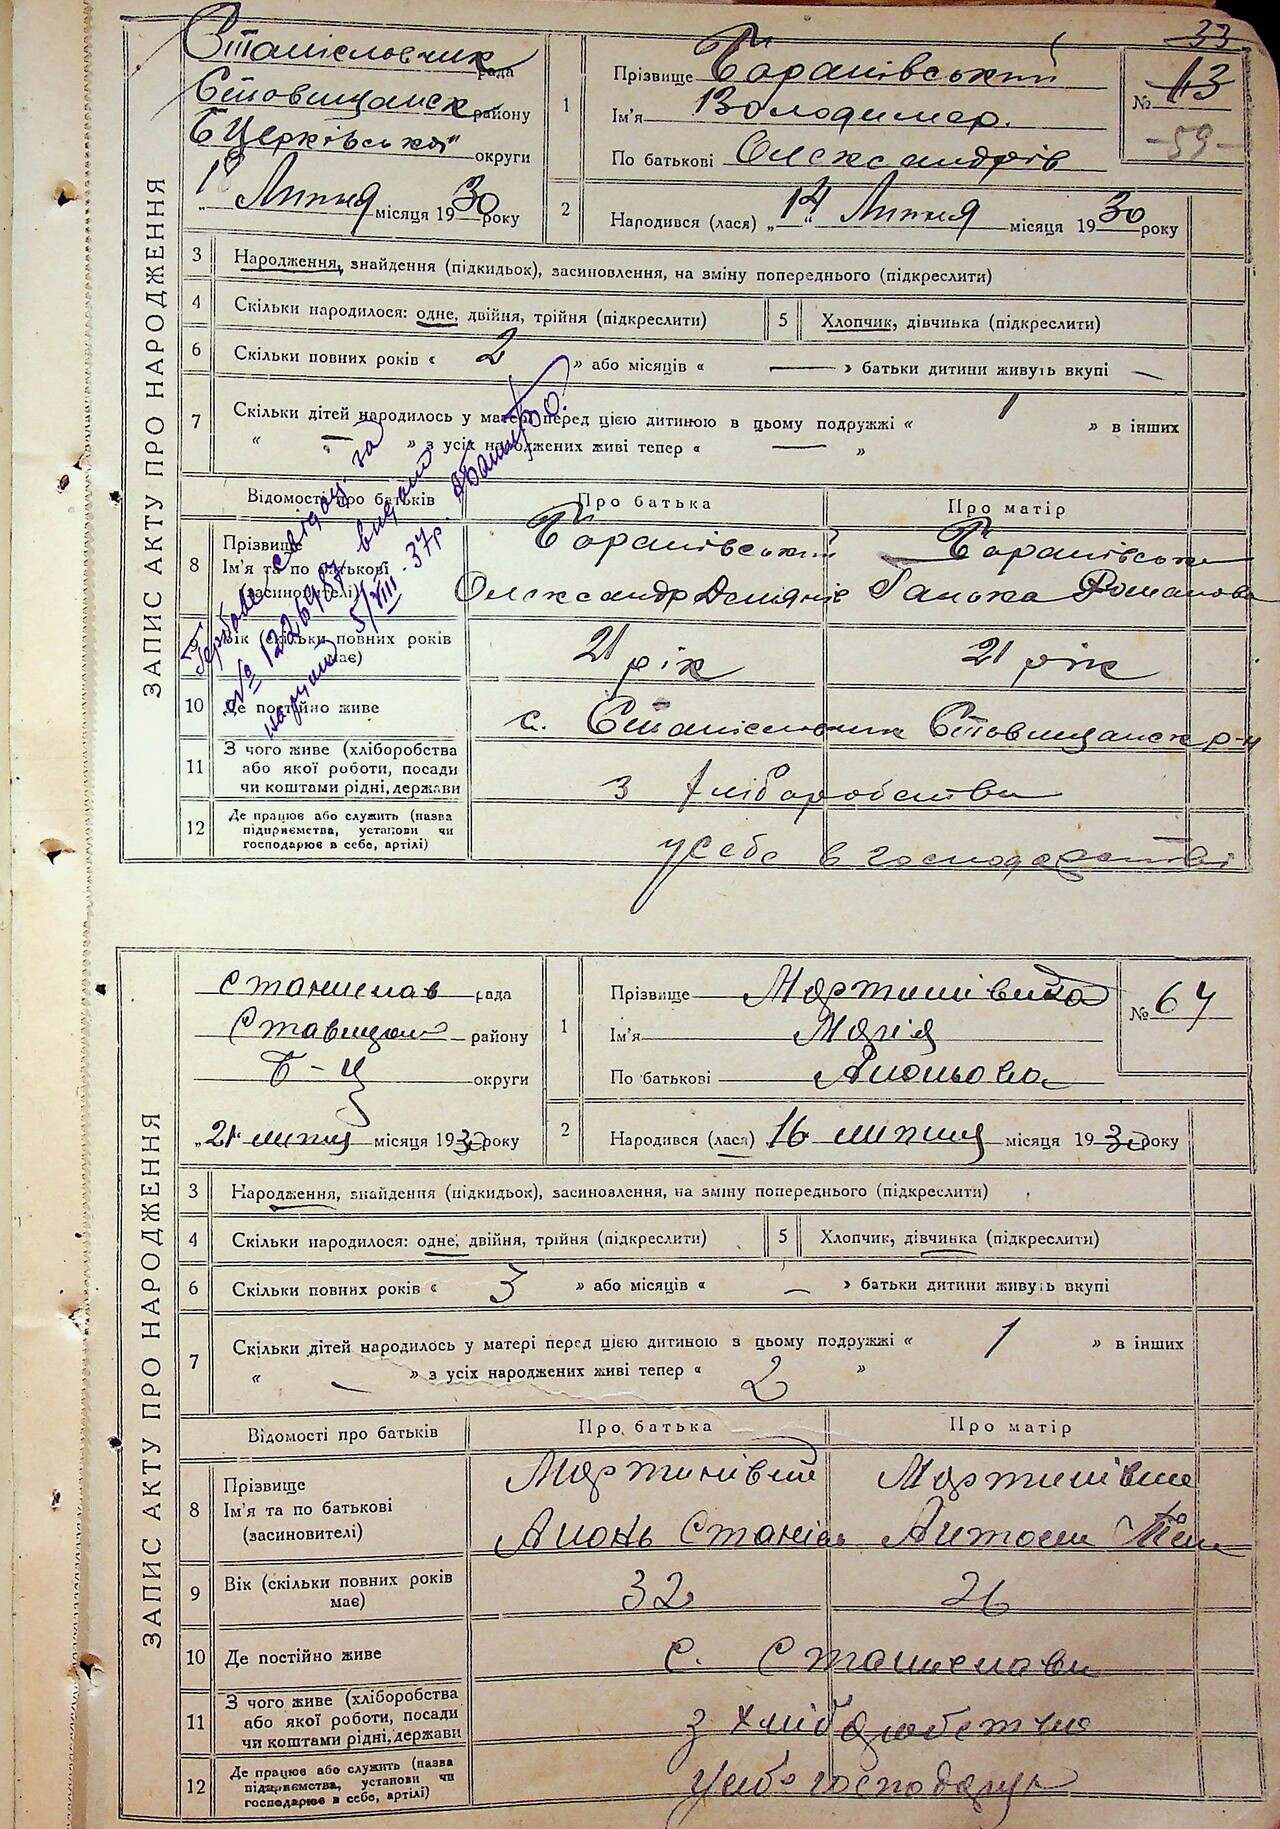 33
ЗАПИС АКТУ ПРО НАРОДЖЕННЯ
Станіславчик рада
Ставищанск району
БЦерківської округи
„18 Липня місяця 1930 року
1
Прізвище Баранівський
Ім'я Володимер.
По батькові Олександрів
№ 43
-59-
2
Народився (лася) „14“ Липня місяця 1930 року
3 Народження, знайдення (підкидьок), засиновлення, на зміну попереднього (підкреслити)
4 Скільки народилося: одне, двійня, трійня (підкреслити)
5 Хлопчик, дівчинка (підкреслити)
6 Скільки повних років « 2 » або місяців « — » батьки дитини живуть вкупі —
7 Скільки дітей народилось у матері перед цією дитиною в цьому подружжі « 1 » в інших
« — » з усіх народжених живі тепер « — »
Відомості про батьків
Про батька
Про матір
8 Прізвище
Ім'я та по батькові
(засиновителі)
Баранівський
Олександр
Баранівська
Ганька Романова
9 Вік (скільки повних років
має)
21 рік
21 рік
10 Де постійно живе
с. Станіславчик Ставищанск р-н
11 З чого живе (хліборобства
або якої роботи, посади
чи коштами рідні, держави
з хліборобства
12 Де працює або служить (назва
підприємства, установи чи
господарює в себе, артілі)
у себе в господарстві
за
№ 1226987 виданий
5/VIII-37р.
ЗАПИС АКТУ ПРО НАРОДЖЕННЯ
Станислав рада
Ставищан району
Б-Ц округи
„21 липня місяця 1930 року
1
Прізвище
Ім'я Марія
По батькові
№ 64
2
Народився (лася) 16 липня місяця 1930 року
3 Народження, знайдення (підкидьок), засиновлення, на зміну попереднього (підкреслити)
4 Скільки народилося: одне, двійня, трійня (підкреслити)
5 Хлопчик, дівчинка (підкреслити)
6 Скільки повних років « 3 » або місяців « — » батьки дитини живуть вкупі
7 Скільки дітей народилось у матері перед цією дитиною з цьому подружжі « 1 » в інших
« — » з усіх народжених живі тепер « 2 »
Відомості про батьків
Про батька
Про матір
8 Прізвище
Ім'я та по батькові
(засиновителі)
9 Вік (скільки повних років
має)
32
26
10 Де постійно живе
с.
11 З чого живе (хліборобства
або якої роботи, посади
чи коштами рідні, держави
з
12 Де працює або служить (назва
підприємства, установи чи
господарює в себе, артілі)